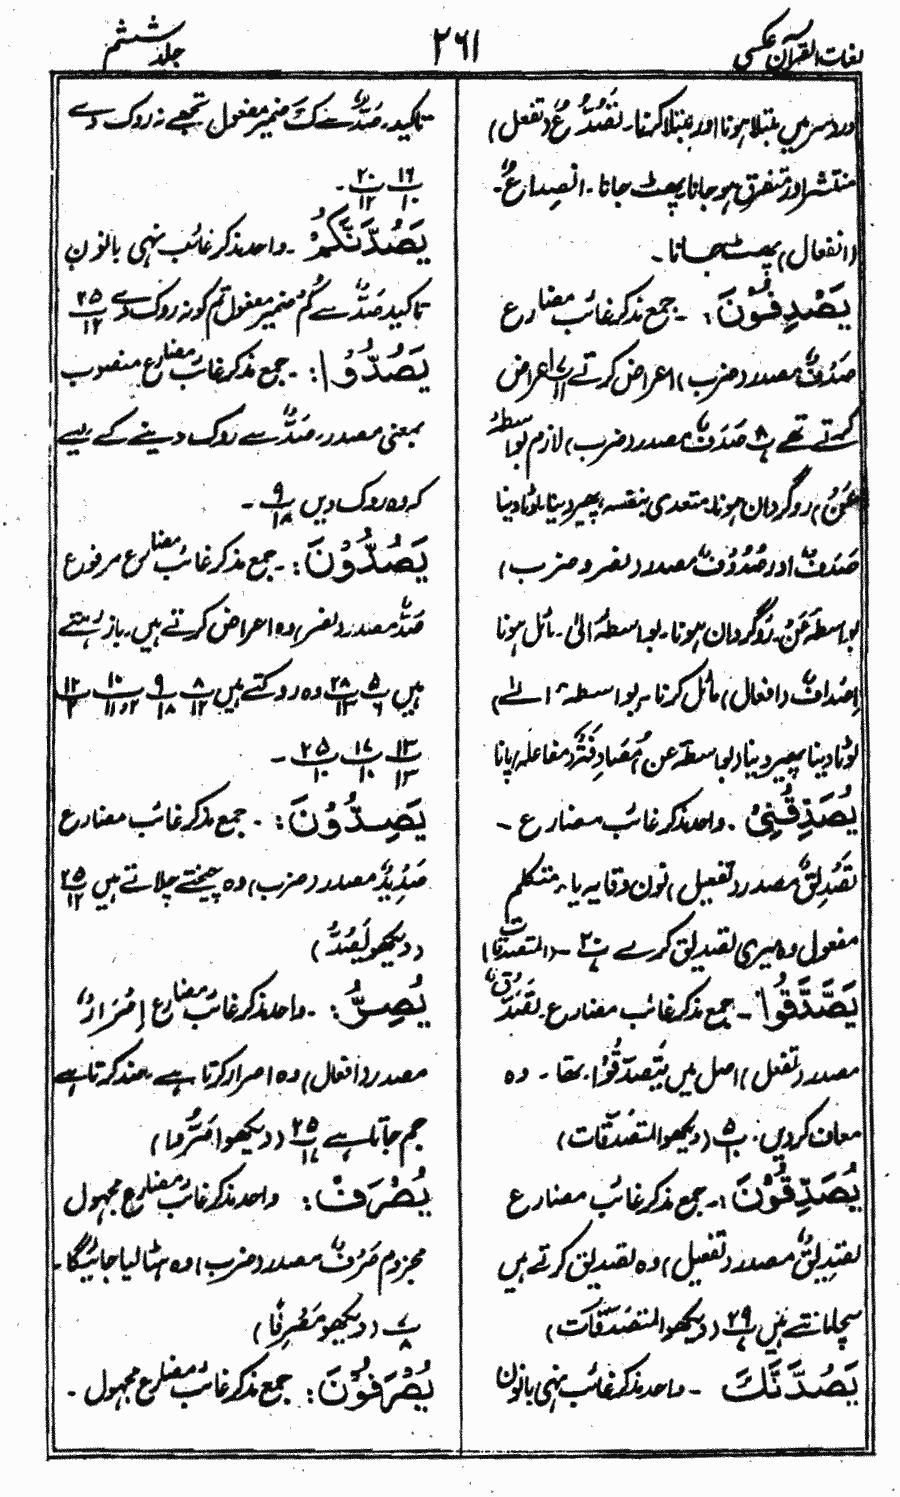 لغات القرآن عکسی
۲۶۱
جلد ششم
دردِ سر میں مبتلا ہونا اور مبتلا کرنا۔ تَصَدُّعٌ (تفعل)
منتشر اور متفرق ہو جانا، پھٹ جانا۔ انصداعٌ۔
(انفعال) پھٹ جانا۔
يَصْدِفُوْنَ: ۔ جمع مذکر غائب مضارع
صَدْفٌ مصدر (ضرب) اعراض کرتے ۱۷/۱۱ اعراض
کرتے تھے پ۸/۷ صَدَفٌ مصدر (ضرب) لازم بواسطۂ
عَنْ) روگرداں ہونا۔ متعدی بنفسہ، پھیر دینا، لوٹا دینا
صَدَفٌ اور صُدُوْفٌ مصدر (نصر و ضرب)
بواسطہ عَنْ۔ روگرداں ہونا۔ بواسطہ الٰی۔ مائل ہونا
اِصْدَافٌ (افعال) مائل کرنا۔ بواسطہ الٰے)
لوٹا دینا پھیر دینا (بواسطہ عن) مُصَادَفَةٌ (مفاعلہ) پانا
يُصَدِّقُنِيْ ۔ واحد مذکر غائب مضارع ۔
تَصْدِيقٌ مصدر (تفعیل) نون وقایہ یا۔ متکلم
مفعول وہ میری تصدیق کرے پ۲۰/۷ ۔ (المتصدقات)
يَصَّدَّقُوْا ۔ جمع مذکر غائب مضارع۔ تَصَدُّقٌ
مصدر (تفعل) اصل میں يَتَصَدَّقُوْا، تھا۔ وہ
معاف کر دیں۔ پ۵/۱۰ (دیکھو المتصدّقات)
يُصَدِّقُوْنَ: ۔ جمع مذکر غائب مضارع
تصدِيقٌ مصدر (تفعیل) وہ تصدیق کرتے ہیں
سچا مانتے ہیں پ۲۹/۷ (دیکھو المتصدّقات)
يَصُدَّنَّكَ ۔ واحد مذکر غائب نہی بانون
تاکید۔ صَدٌّ سے کَ ضمیر مفعول تجھے نہ روک دے
۱۶/۱۰ ۲۰/۱۲ ۔
يَصُدَّنَّكُمْ ۔ واحد مذکر غائب نہی بانونِ
تاکید صَدٌّ سے كُمْ ضمیر مفعول تم کو نہ روک دے ۲۵/۱۲
يَصُدُّوْا: ۔ جمع مذکر غائب مضارع منصوب
بمعنی مصدر۔ صَدٌّ سے روک دینے کے لیے
کہ وہ روک دیں پ۹/۱۸ ۔
يَصُدُّوْنَ: ۔ جمع مذکر غائب مضارع مرفوع
صَدٌّ مصدر (نصر) وہ اعراض کرتے ہیں۔ باز رہتے
ہیں پ۵/۶ ۲۸/۱۳ وہ روکتے ہیں پ۸/۱۲ ۹/۱۸ ۱۰/۲و۱۱ ۱۲/۲
۱۳/۱۳ ۱۷/۱۰ ۲۵/۱۰ ۔
يَصِدُّوْنَ: ۔ جمع مذکر غائب مضارع
صَدِيْدٌ مصدر (ضرب) وہ چیختے چلاتے ہیں ۲۵/۱۲
(دیکھو يَصُدُّ)
يُصِرُّ: ۔ واحد مذکر غائب مضارع اِصْرَارٌ
مصدر (افعال) وہ اصرار کرتا ہے۔ ضد کرتا ہے
جم جاتا ہے پ۲۵/۱۷ (دیکھو اَصَرُّوا)
يُصْرَفْ: واحد مذکر غائب مضارع مجہول
مجزوم صَرْفٌ مصدر (ضرب) وہ ہٹا لیا جائیگا۔
پ۷/۸ (دیکھو مَصْرِفًا)
يُصْرَفُوْنَ: جمع مذکر غائب مضارع مجہول ۔